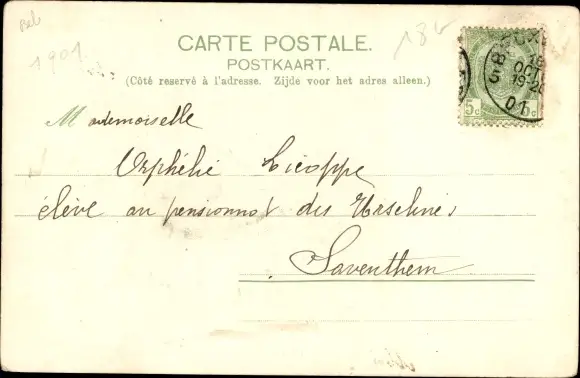 Bel
1901
186
CARTE POSTALE.
POSTKAART.
(Côté reservé à l'adresse. Zijde voor het adres alleen.)
5c 5c
5 19 OCT 19-20 01
Mademoiselle
Orphélie Licoppe
élève au pensionnat des Urselines
Saventhem